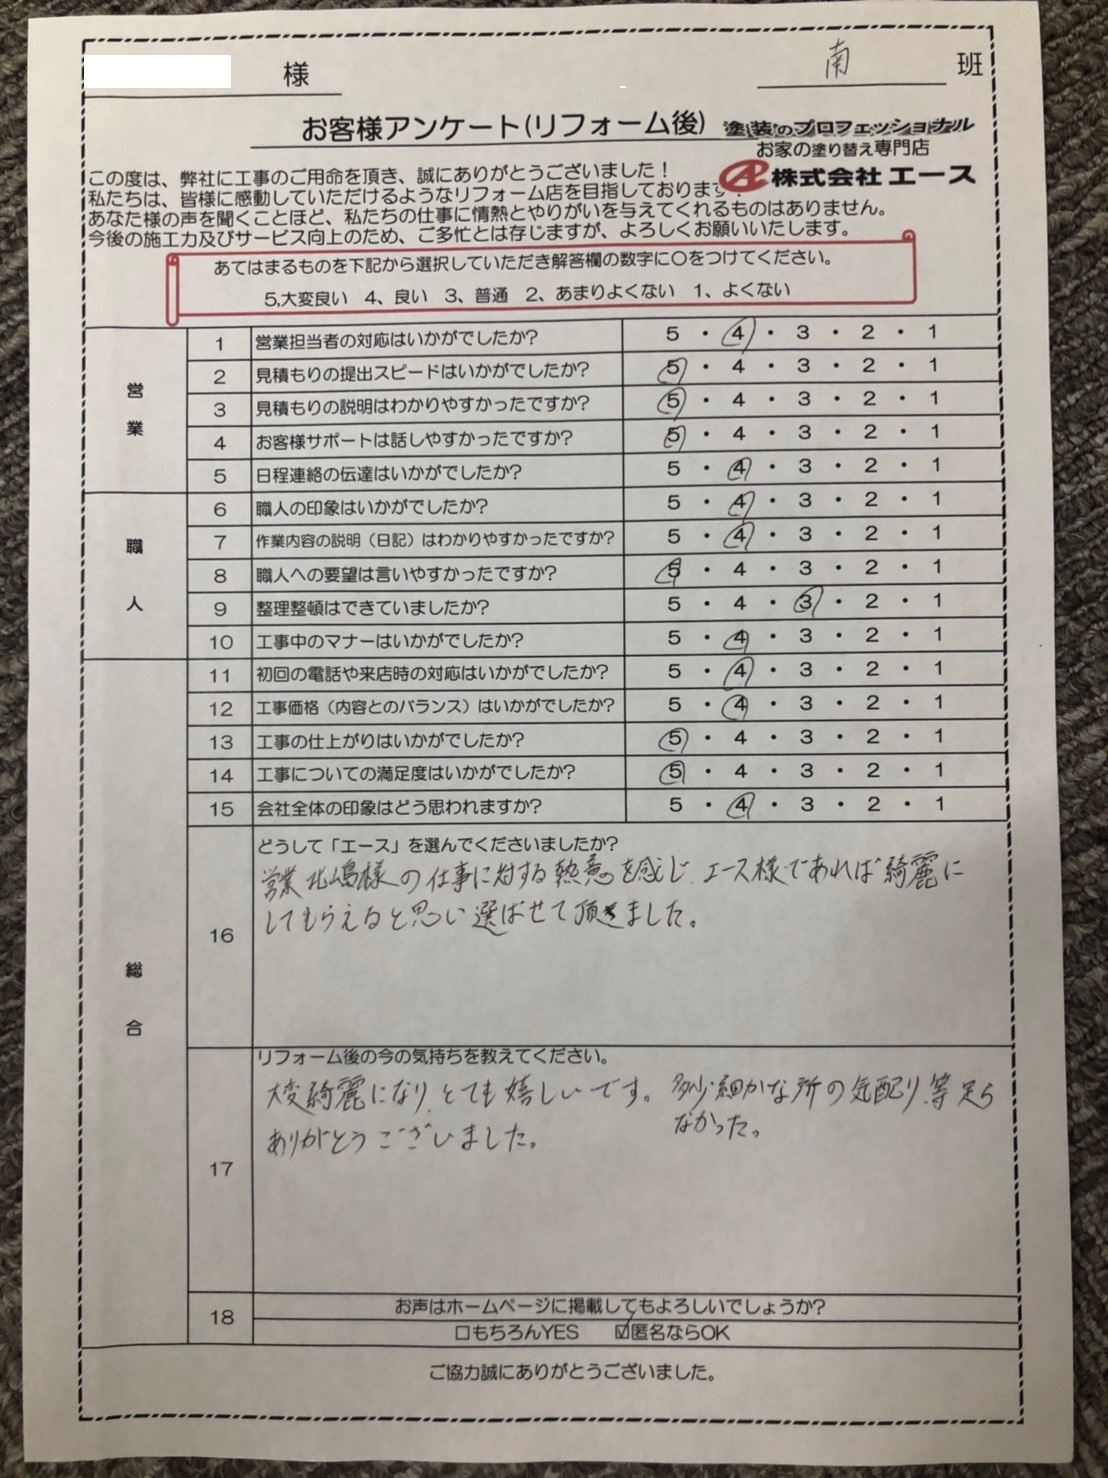 様
南 班
お客様アンケート(リフォーム後)
塗装のプロフェッショナル
お家の塗り替え専門店
株式会社 エース
この度は、弊社に工事のご用命を頂き、誠にありがとうございました！
私たちは、皆様に感動していただけるようなリフォーム店を目指しております！
あなた様の声を聞くことほど、私たちの仕事に情熱とやりがいを与えてくれるものはありません。
今後の施工力及びサービス向上のため、ご多忙とは存じますが、よろしくお願いいたします。
あてはまるものを下記から選択していただき解答欄の数字に○をつけてください。
5,大変良い 4、良い 3、普通 2、あまりよくない 1、よくない
営業
1 営業担当者の対応はいかがでしたか? 5・4・3・2・1
2 見積もりの提出スピードはいかがでしたか? 5・4・3・2・1
3 見積もりの説明はわかりやすかったですか? 5・4・3・2・1
4 お客様サポートは話しやすかったですか? 5・4・3・2・1
5 日程連絡の伝達はいかがでしたか? 5・4・3・2・1
職人
6 職人の印象はいかがでしたか? 5・4・3・2・1
7 作業内容の説明（日記）はわかりやすかったですか? 5・4・3・2・1
8 職人への要望は言いやすかったですか? 5・4・3・2・1
9 整理整頓はできていましたか? 5・4・3・2・1
10 工事中のマナーはいかがでしたか? 5・4・3・2・1
総合
11 初回の電話や来店時の対応はいかがでしたか? 5・4・3・2・1
12 工事価格（内容とのバランス）はいかがでしたか? 5・4・3・2・1
13 工事の仕上がりはいかがでしたか? 5・4・3・2・1
14 工事についての満足度はいかがでしたか? 5・4・3・2・1
15 会社全体の印象はどう思われますか? 5・4・3・2・1
16 どうして「エース」を選んでくださいましたか?
営業北嶋様の仕事に対する熱意を感じ、エース様であれば綺麗に
してもらえると思い選ばせて頂きました。
17 リフォーム後の今の気持ちを教えてください。
大変綺麗になり、とても嬉しいです。
ありがとうございました。
多少細かな所の気配り、等足ら
なかった。
18 お声はホームページに掲載してもよろしいでしょうか?
□もちろんYES ☑匿名ならOK
ご協力誠にありがとうございました。